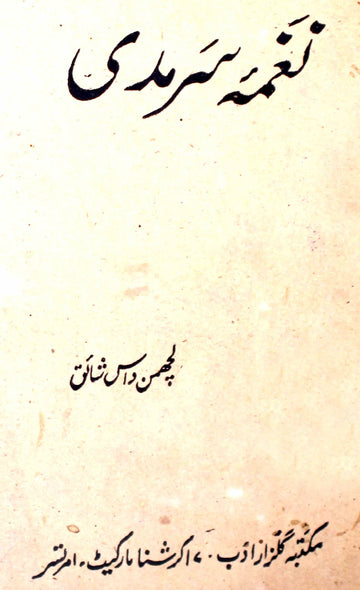 نغمۂ سرمدی
لچھمن داس شائق
مکتبہ گلزار ادب۔ ۷۰ کرشنا مارکیٹ۔ امرتسر